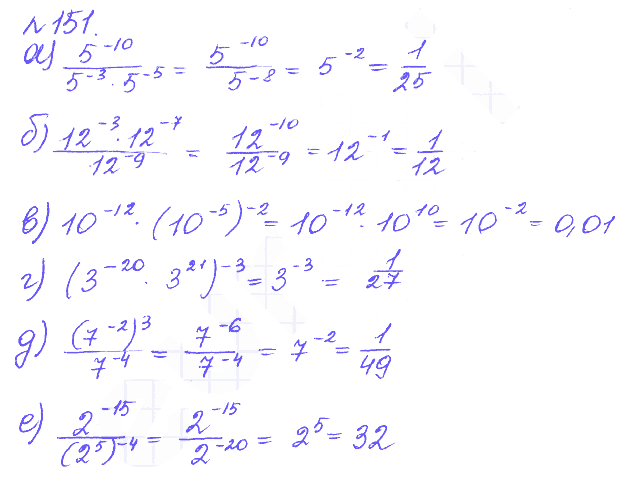 №151.
а) 5^{-10}/(5^{-3} · 5^{-5}) = 5^{-10}/5^{-8} = 5^{-2} = 1/25
б) (12^{-3} · 12^{-7})/12^{-9} = 12^{-10}/12^{-9} = 12^{-1} = 1/12
в) 10^{-12} · (10^{-5})^{-2} = 10^{-12} · 10^{10} = 10^{-2} = 0,01
г) (3^{-20} · 3^{21})^{-3} = 3^{-3} = 1/27
д) (7^{-2})^{3}/7^{-4} = 7^{-6}/7^{-4} = 7^{-2} = 1/49
е) 2^{-15}/(2^{5})^{-4} = 2^{-15}/2^{-20} = 2^{5} = 32